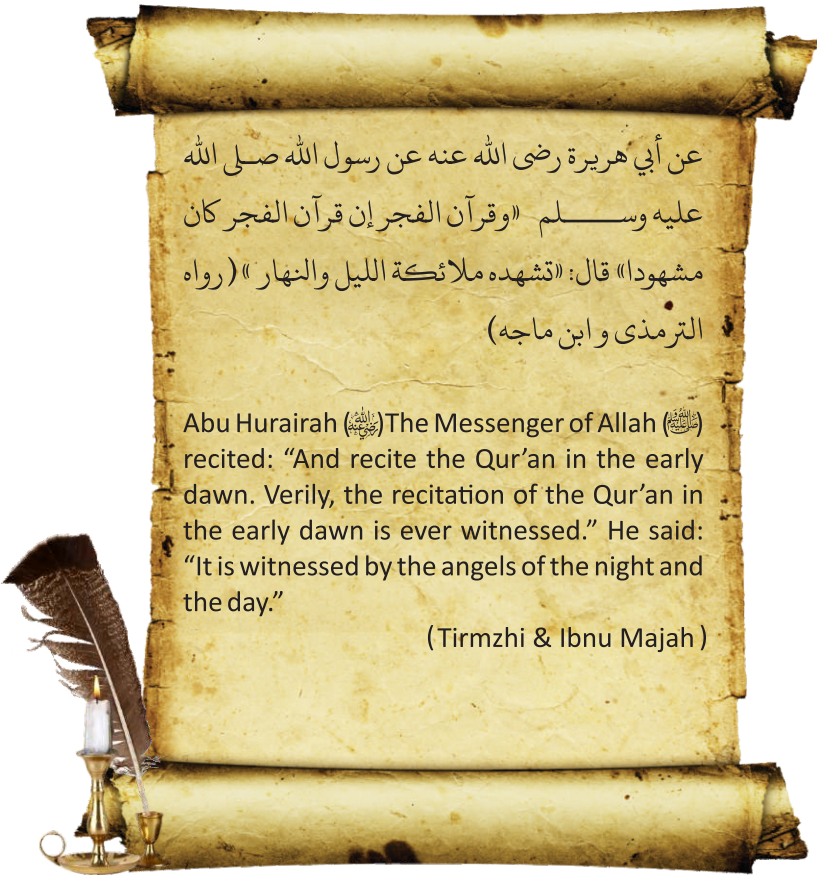 عن أبي هريرة رضى الله عنه عن رسول الله صلى الله
عليه وسلم «وقرآن الفجر إن قرآن الفجر كان
مشهودا» قال: «تشهده ملائكة الليل والنهار» (رواه
الترمذى و ابن ماجه)
Abu Hurairah (رضي الله عنه)The Messenger of Allah (ﷺ)
recited: “And recite the Qur’an in the early
dawn. Verily, the recitation of the Qur’an in
the early dawn is ever witnessed.” He said:
“It is witnessed by the angels of the night and
the day.”
(Tirmzhi & Ibnu Majah)